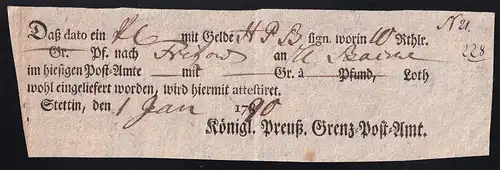 N 21.
Daß dato ein PC mit Gelde H P B ſign. worin 10 Rthlr.
228
Gr. Pf. nach an
im hieſigen Poſt-Amte mit Gr. â Pfund, Loth
wohl eingeliefert worden, wird hiermit atteſtiret.
Stettin, den 1 Jan 1790
Königl. Preuß. Grenz-Poſt-Amt.